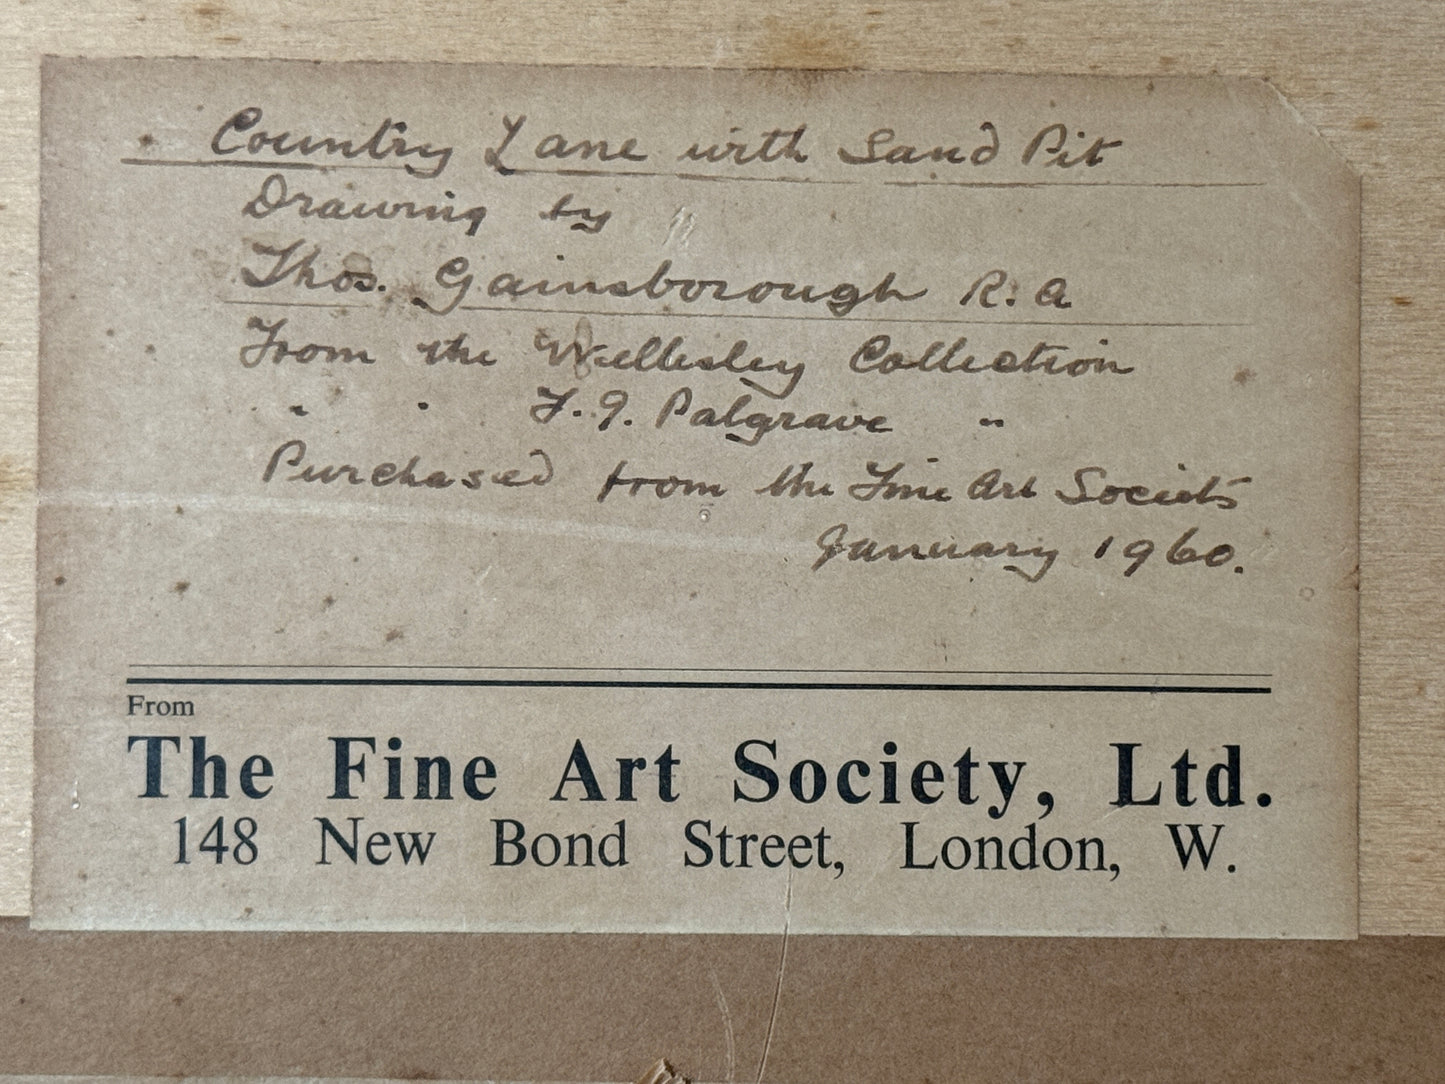 Country Lane with Sand Pit
Drawing by
Thos. Gainsborough R.A
From the Wellesley Collection
" " F.J. Palgrave "
Purchased from the Fine Art Society
January 1960.
From
The Fine Art Society, Ltd.
148 New Bond Street, London, W.